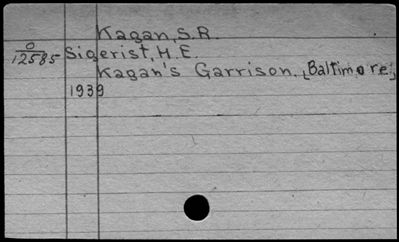 Kagan, S.R.
O
12585 Sigerist, H.E.
Kagan's Garrison. [Baltimore]
1939